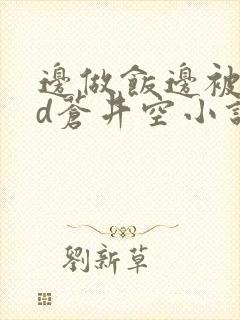 邊做飯邊被
d蒼井空小說
劉新草